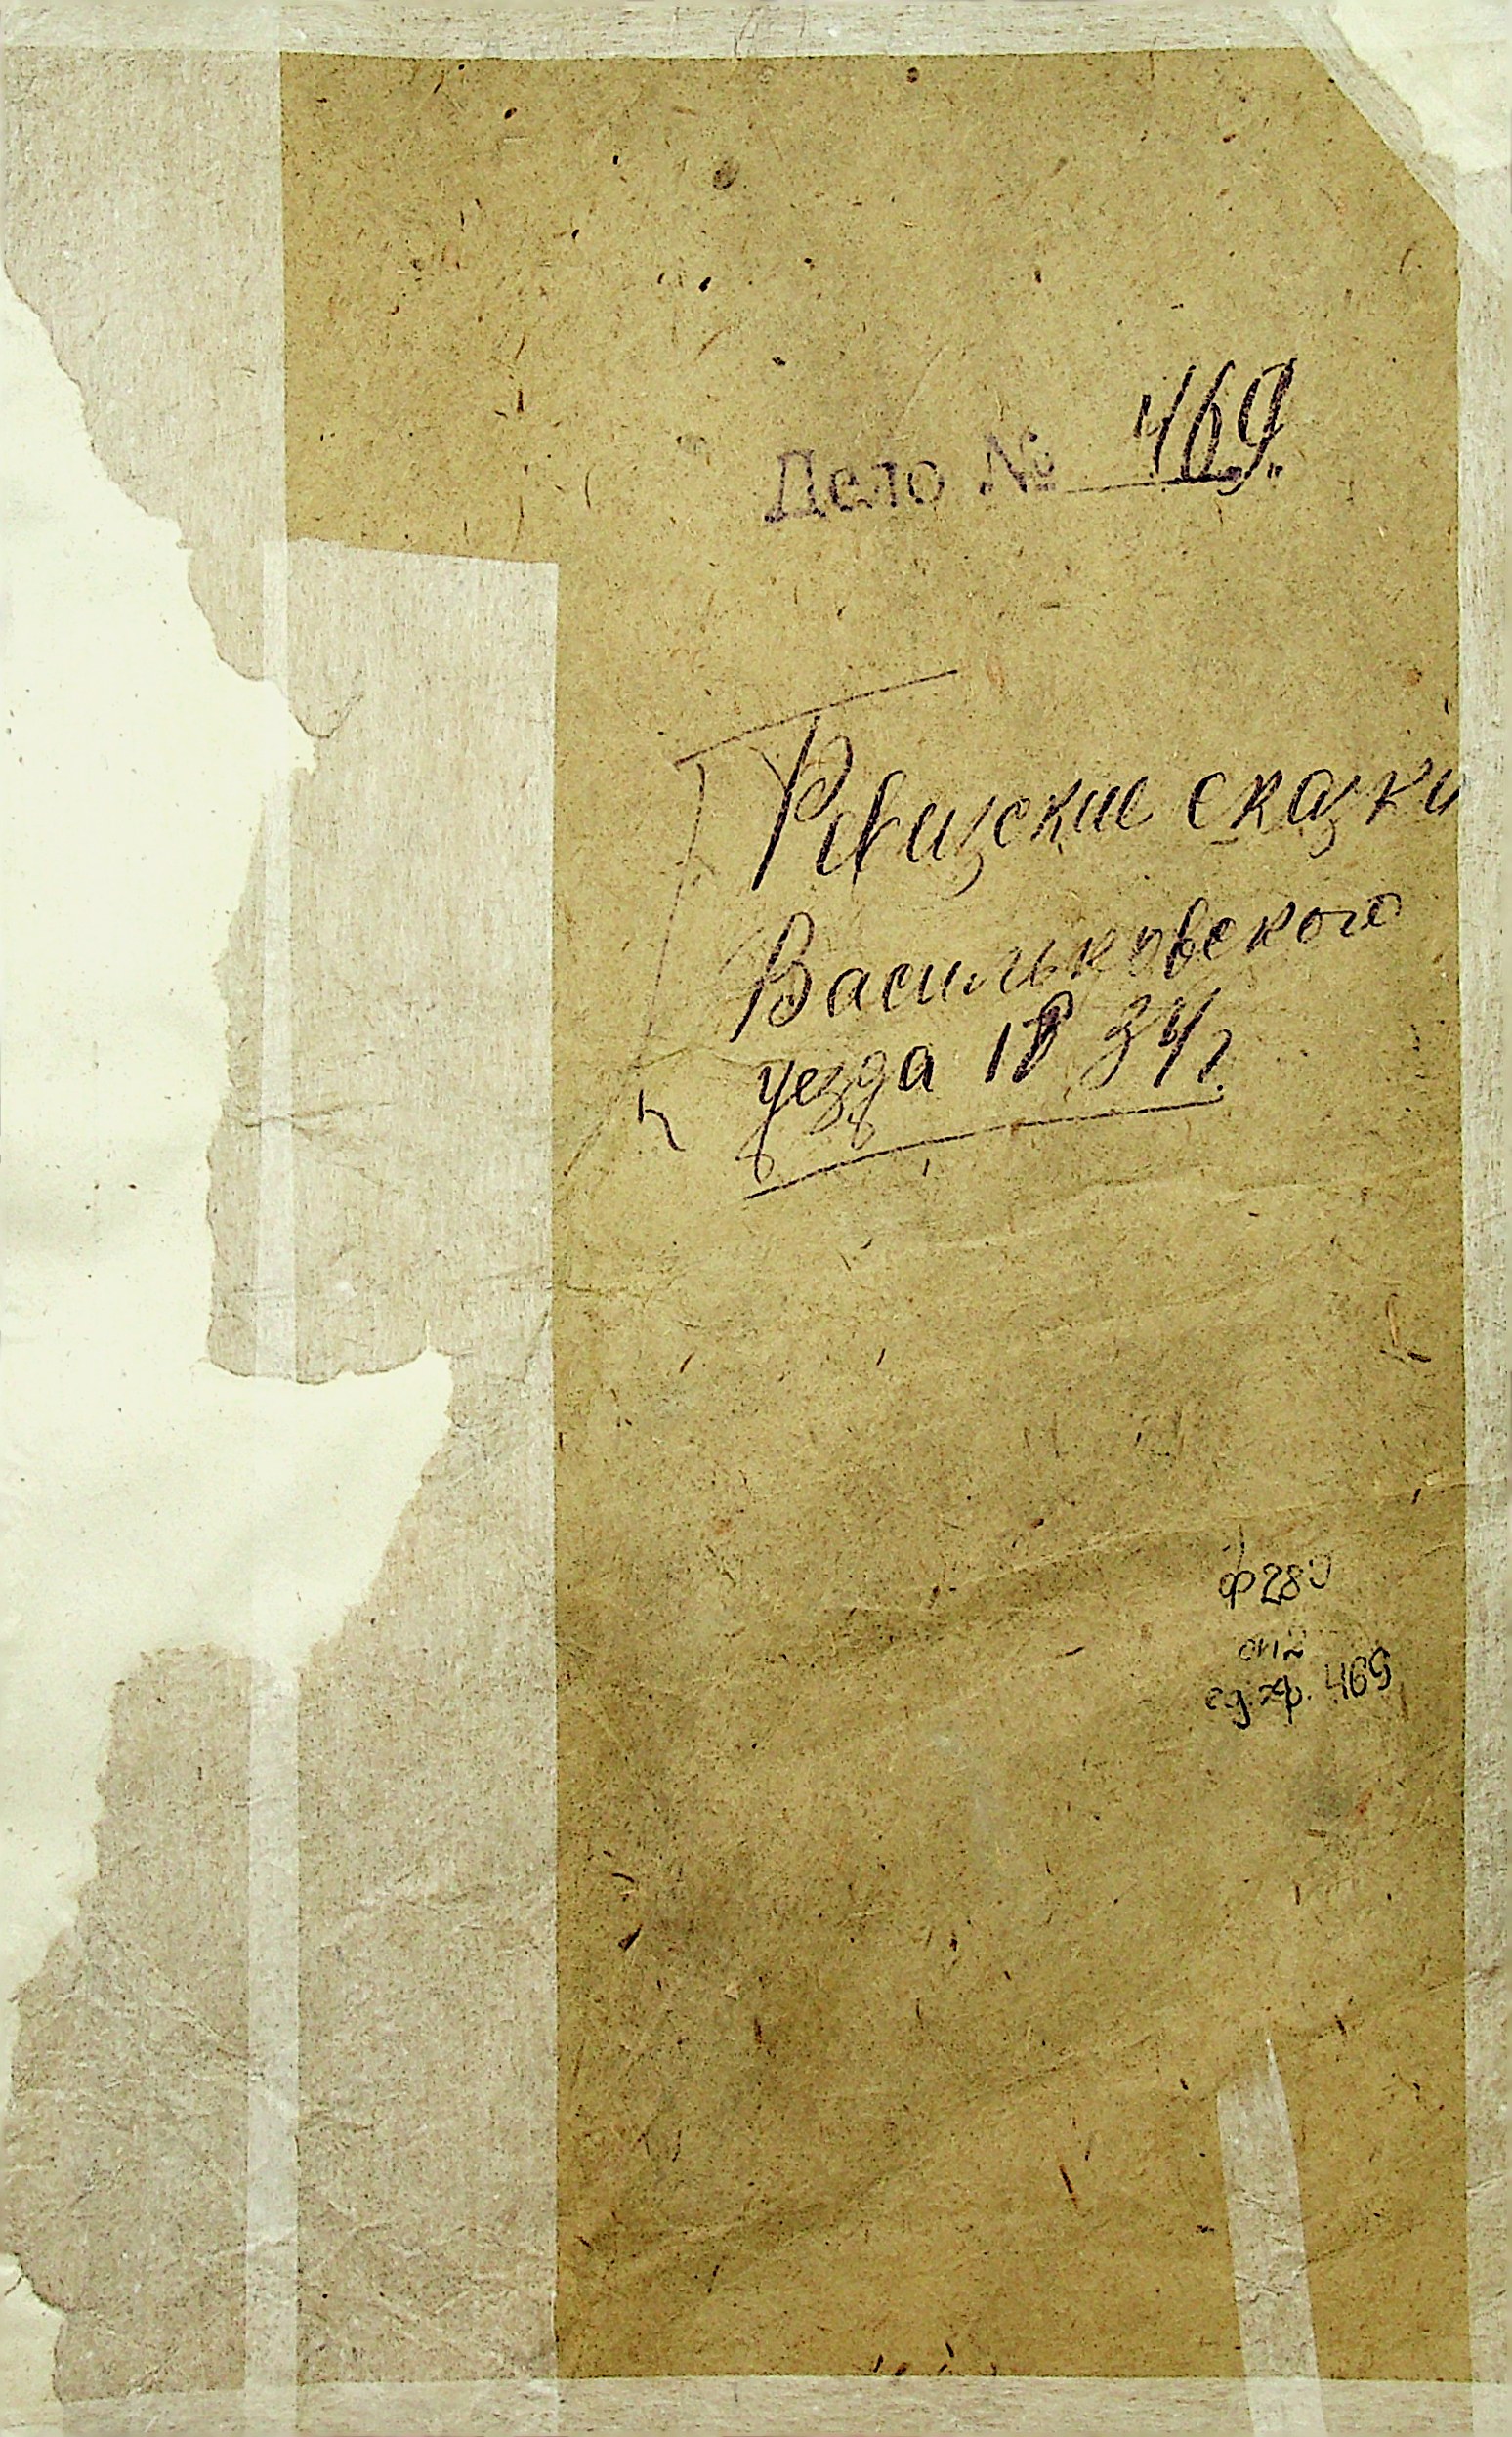 Дело № 469.
Ревизские сказки
Васильковского
уезда 1834 г.
ф 280
оп 2
ед. хр. 469